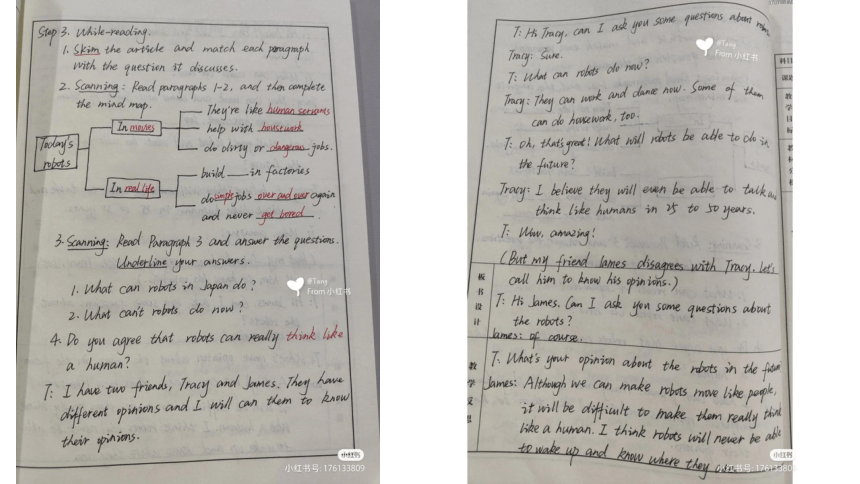 Step 3. While-reading.
1. Skim the article and match each paragraph
with the question it discusses.
2. Scanning: Read paragraphs 1-2, and then complete
the mind map.
Today's
robots
In movies
They're like human servants
help with housework
do dirty or dangerous jobs.
In real life
build ___ in factories
do simple jobs over and over again
and never get bored.
3. Scanning: Read Paragraph 3 and answer the questions.
Underline your answers.
1. What can robots in Japan do?
2. What can't robots do now?
4. Do you agree that robots can really think like
a human?
T: I have two friends, Tracy and James. They have
different opinions and I will can them to know
their opinions.
@Tany
From 小红书
小红书
小红书号: 176133809
T: Hi Tracy, can I ask you some questions about
Tracy: Sure.
T: What can robots do now?
Tracy: They can work and dance now. Some of them
can do housework, too.
T: oh, that's great! What will robots be able to do in
the future?
Tracy: I believe they will even be able to talk and
think like humans in 25 to 50 years.
T: Wow, amazing!
(But my friend James disagrees with Tracy. Let's
call him to know his opinions.)
T: Hi James. Can I ask you some questions about
the robots?
James: of course.
T: What's your opinion about the robots in the future
James: Although we can make robots move like people,
it will be difficult to make them really think
like a human. I think robots will never be able
to wake up and know where they
板
书
设
计
教
学
反
思
科目
教
学
目
标
@Tany
From 小红书
小红书
小红书号: 1761338